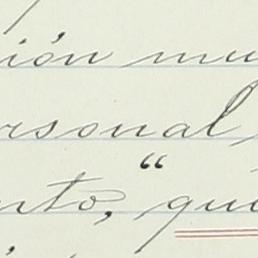 ión mu
rsonal
nto, “ que